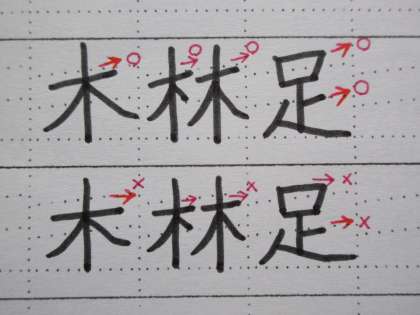 木林足
木林足